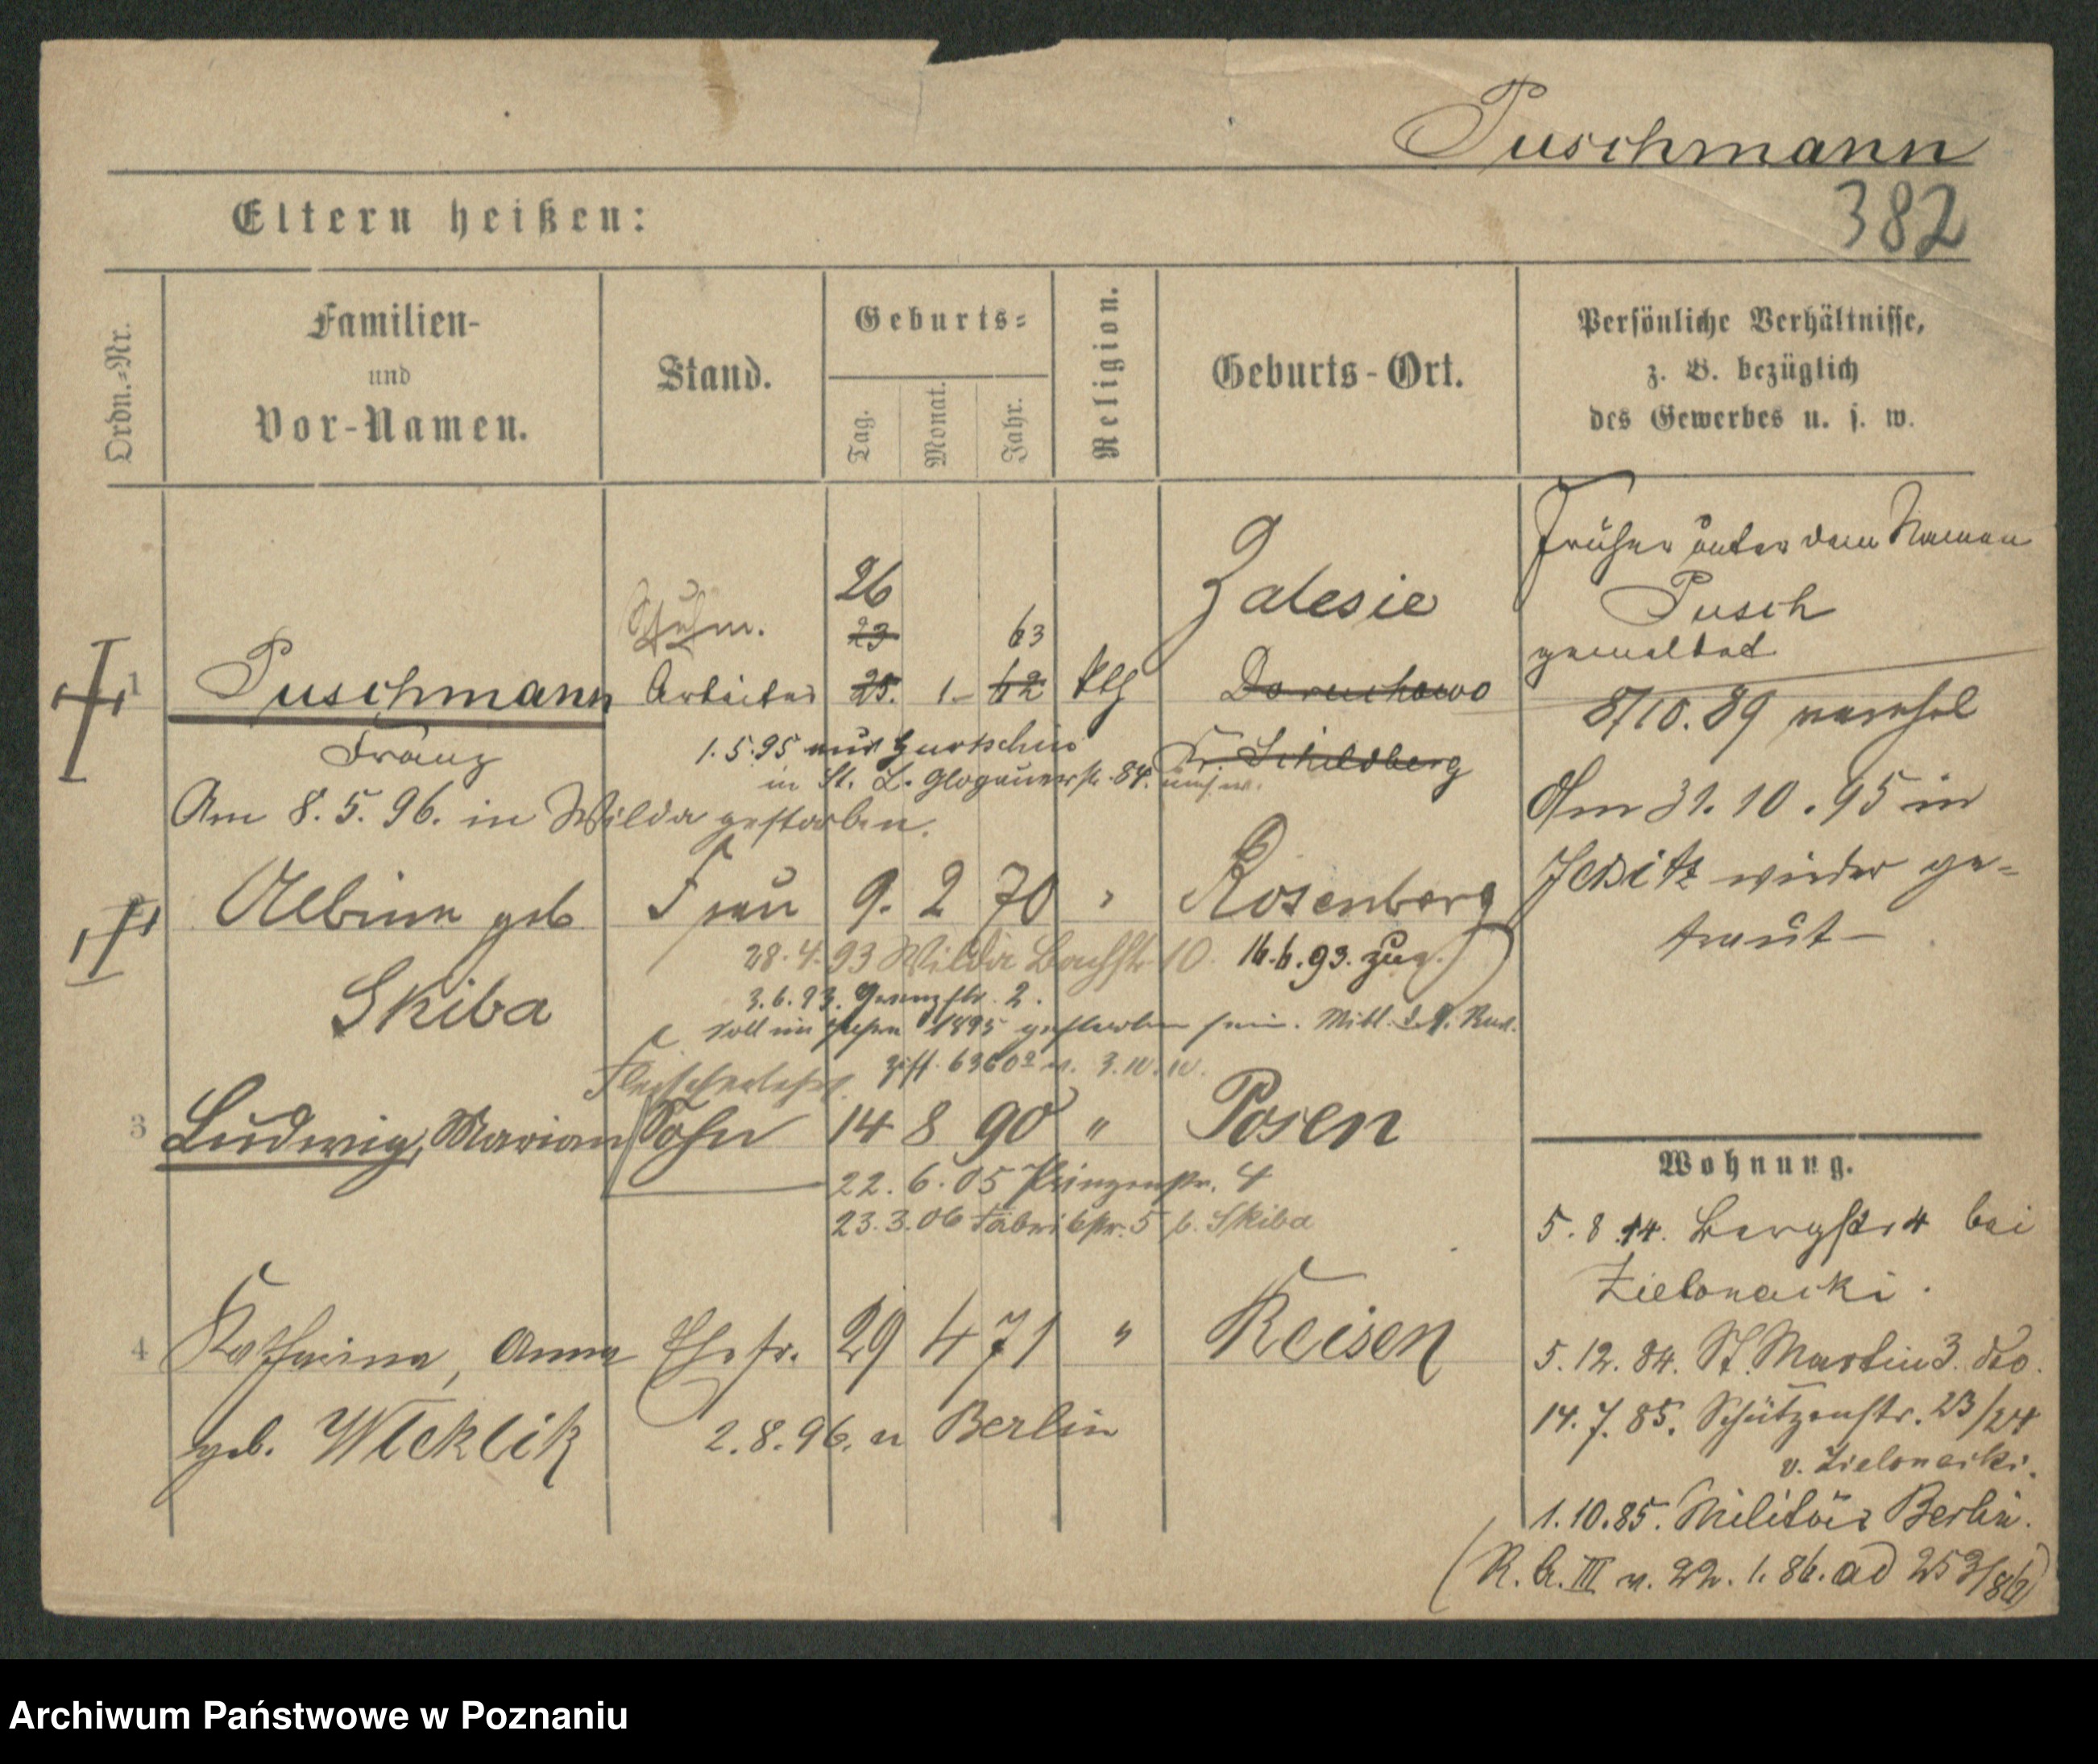 Puschmann
382
Eltern heißen:
Ordn.-Nr.
Familien-
und
Vor-Namen.
Stand.
Geburts-
Tag.
Monat.
Jahr.
Religion.
Geburts-Ort.
Persönliche Verhältnisse,
z. B. bezüglich
des Gewerbes u. s. w.
1 Puschmann Arbeiter 25. 1. 62 kth Doruchowo
26
23 63
Zalesie
Franz
Kr. Schildberg
1.5.95 aus Gurtschin
in St. L. Glogauerstr. 84.
Am 8.5.96. in Wilda gestorben.
Früher unter dem Namen
Pusch
gemeldet
8/10.89 verehel
Am 31.10.95 in
Jersitz wieder ge-
traut
2 Albina geb Frau 9. 2 70 " Rosenberg
Skiba
28.4.93 Wilda Bachstr 10. 16.6.93. zug.
3.6.93. Grenzstr. 2.
soll im Jahre 1895 gestorben sein. Mitt. d.
3 Ludwig, Marian Sohn 14 8 90 " Posen
Fleischerlehrl.
22.6.05 Prinzenstr. 4
23.3.06 Fabrikstr. 5 b. Skiba
4 Katharina, Anna Ehefr. 29 4 71 " Reisen
geb. Wleklik
2.8.96. n Berlin
Wohnung.
5.8.14. Bergstr 4 bei
Zielonacki.
5.12.84. St. Martin 3. do.
14.7.85. Schützenstr. 23/24
v. Zielonacki.
1.10.85. Militär Berlin.
(R. A. III v. 22.1.86. ad 253/86)
Archiwum Państwowe w Poznaniu